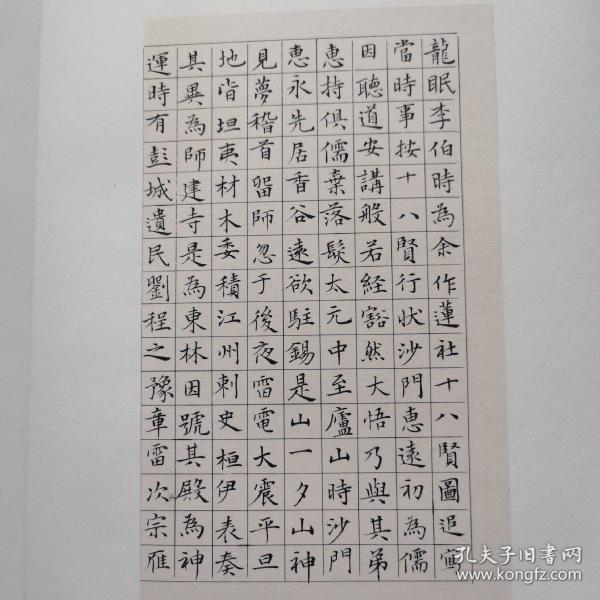 龍眠李伯時為余作蓮社十八賢圖追寫
當時事按十八賢行狀沙門惠遠初為儒
因聽道安講般若経豁然大悟乃與其弟
惠持俱儒棄落髮太元中至廬山時沙門
惠永先居香谷遠欲駐錫是山一夕山神
見夢稽首留師忽于後夜雷電大震平旦
地皆坦夷材木委積江州刺史桓伊表奏
其異為師建寺是為東林因號其殿為神
運時有彭城遺民劉程之豫章雷次宗雁
孔夫子旧书网
kongfz.com